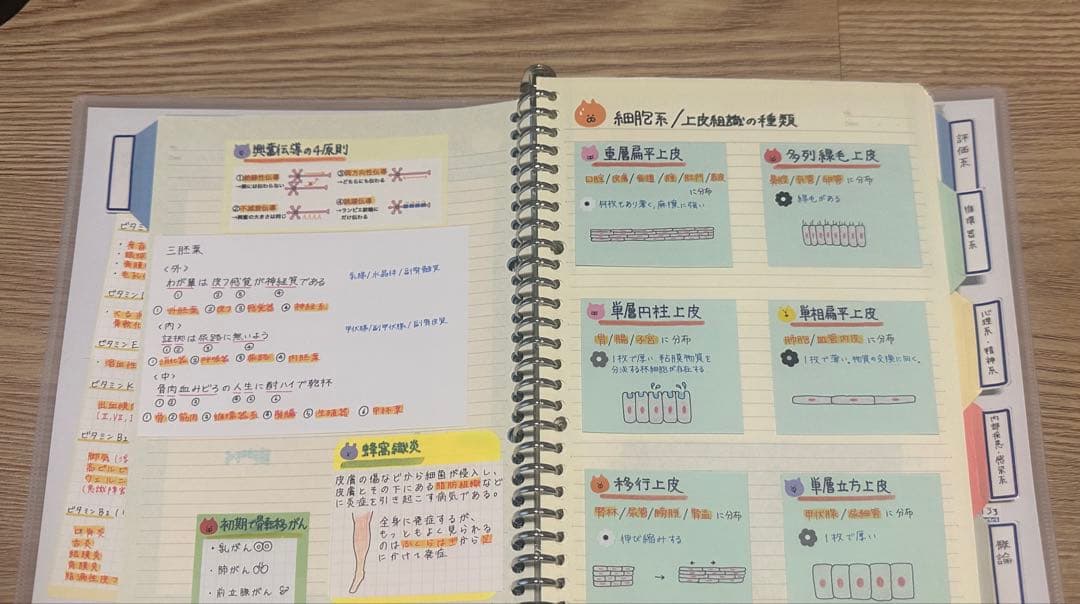 興奮伝導の4原則
①絶縁性伝導
→隣には伝わらない
③両方向性伝導
→どちらにも伝わる
②不減衰伝導
→興奮の大きさは同じ
④跳躍伝導
→ランビエ絞輪に
だけ伝わる
三胚葉
〈外〉
わが輩は皮フ感覚が神経質である
① ② ③ ④
①外胚葉 ②皮フ ③感覚器 ④神経系
乳腺/水晶体/副腎髄質
〈内〉
証拠は尿路に無いよう
①② ③ ④
①消化器 ②呼吸器 ③尿路 ④内胚葉
甲状腺/副甲状腺/
〈中〉
骨肉血みどろの人生に酎ハイで乾杯
①②③ ④ ⑤ ⑥
①骨 ②筋肉 ③循環器系 ④腎臓 ⑤生殖器 ⑥中胚葉
蜂窩織炎
皮膚の傷などから細菌が侵入し、
皮膚とその下にある脂肪組織など
に炎症を引き起こす病気である。
全身に発症するが、
もっともよく見られる
のはふくらはぎから足
にかけて発症
初期で骨転移がん
・乳がん
・肺がん
・前立腺がん
ビタミン
ビタミンE
・溶血性
ビタミンK
出血傾向
ビタミンB1
脚気
ビタミンB2
口角炎
舌炎
結膜炎
角膜炎
細胞系/上皮組織の種類
重層扁平上皮
口腔/皮膚/食道/腟/肛門/
に分布
何枚もあり薄く、摩擦に強い
多列線毛上皮
鼻腔/気管/卵管に分布
線毛がある
単層円柱上皮
胃/腸/子宮に分布
1枚で厚い。粘膜物質を
分泌する杯細胞が存在する
単相扁平上皮
肺胞/血管内皮に分布
1枚で薄い。物質の交換に向く。
移行上皮
腎杯/尿管/膀胱/腎盂に分布
伸び縮みする
単層立方上皮
甲状腺/尿細管に分布
1枚で厚い
評価系
循環器系
心理系・精神系
内部疾患・感染系
概論